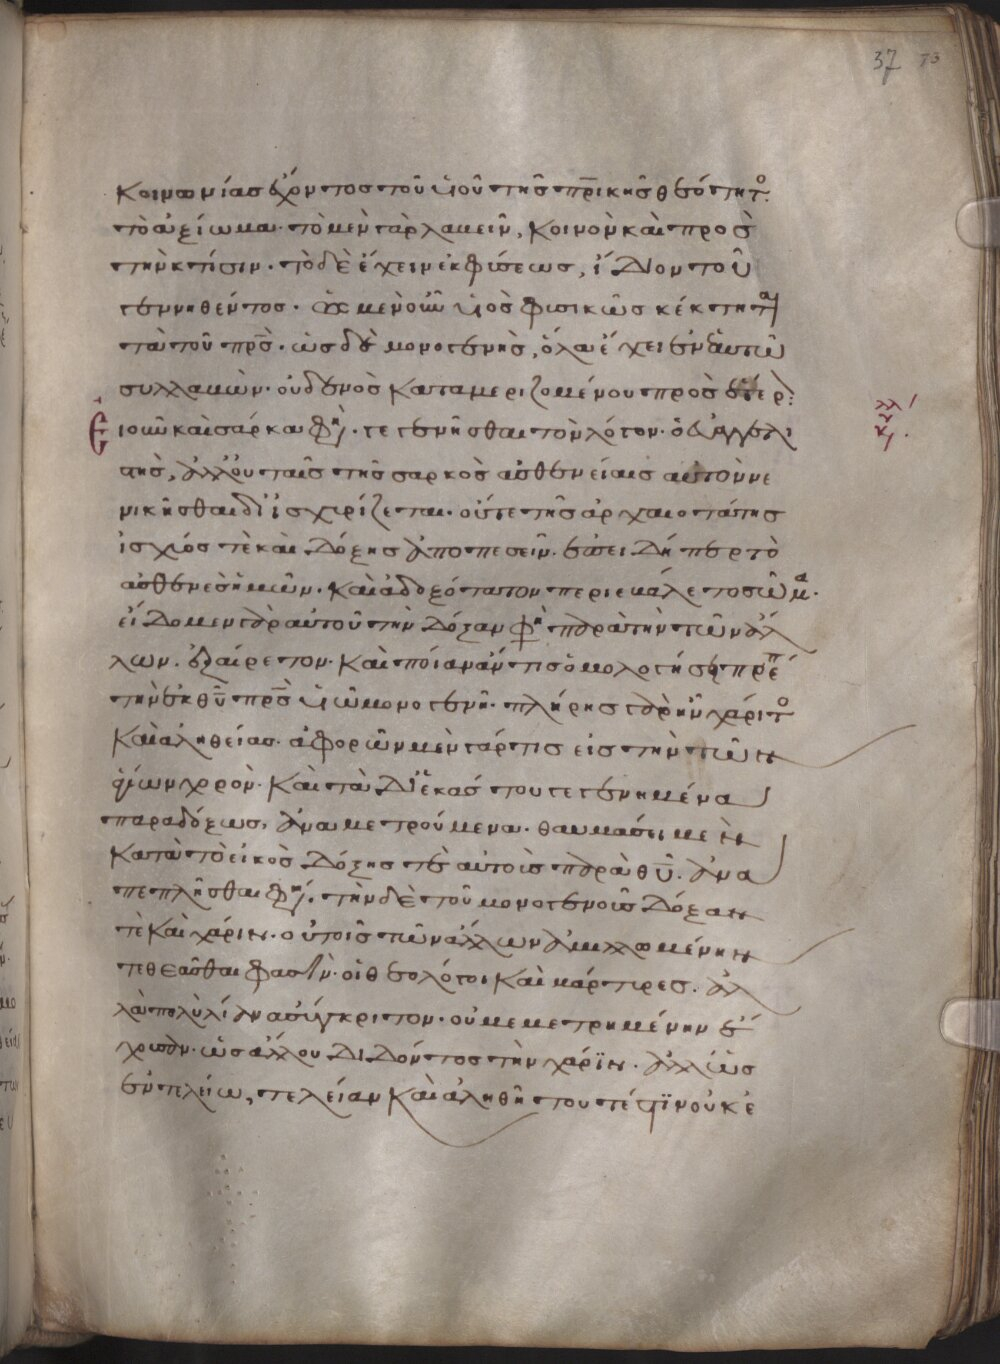 37 73
κοινωνίας ἔχοντος τοῦ υἱοῦ τῆς πρικῆς θεότητο
τὸ ἀξίωμα· τὸ μὲν γὰρ λαβεῖν, κοινὸν καὶ πρὸς
τὴν κτίσιν· τὸ δὲ ἔχειν ἐκ φύσεως, ἴδιον τοῦ
γεννηθέντος· ὡς μὲν οὖν υἱὸς φυσικῶς κέκτηται
τὰ τοῦ πρς· ὡς δὲ μονογενὴς, ὅλα ἔχει ἐν ἑαυτῶ
συλλαβὼν· οὐδενὸς καταμεριζομένου πρὸς ἕτερ
Ειοῦν καὶ σάρκα φη· γεγενῆσθαι τὸν λόγον· ὁ εὐαγγελι
στὴς, ἀλλ' οὐ ταῖς τῆς σαρκὸς ἀσθενείαις αὐτὸν νε
νικῆσθαι διϊσχυρίζεται· οὔτε τῆς ἀρχαιοτάτης
ἰσχύος τὲ καὶ δόξης ἀποπεσεῖν· ἐπείδήπερ τὸ
ἀσθενὲς ἡμῶν· καὶ ἀδοξότατον περιεβάλετο σῶμα·
εἴδομεν γὰρ αὐτοῦ τὴν δόξαν φη παρὰ τὴν τῶν ἄλ
λων· ἐξαίρετον· καὶ ποίαν ἄν τις ὁμολογήσει πρέπ
την ἐκ θυ πρς υἱῶ μονογενῆ· πλήρης γὰρ ἦν χάριτο
καὶ ἀληθείας· ἀφορῶν μὲν γάρ τις εἰς τὴν τῶν
ἁγίων χορὸν· καὶ τὰ δι' ἑκάστου γεγενημένα
παραδόξως, ἀναμετρούμενα· θαυμάσει μὲν
κατὰ τὸ εἰκὸς δόξης τὲ αὐτοὶς παρὰ θυ· ἀνα
πεπλῆσθαι φη· τὴν δὲ τοῦ μονογενοῦς δόξαν
τὲ καὶ χάριν· οὐ τοῖς τῶν ἄλλων ἁμιλλωμένην
τεθεᾶσθαι φασὶν· οἱ θεολόγοι καὶ μάρτυρες· ἀλ
λὰ πολὺ λίαν ἀσύγκριτον· οὐ μεμετρημένην ἔ
χουσαν· ὡς ἄλλου διδόντος τὴν χάριν· ἀλλ' ὡς
ἐν τελείω, τελείαν καὶ ἀληθῆ τουτέστϊν οὐκ ἐ